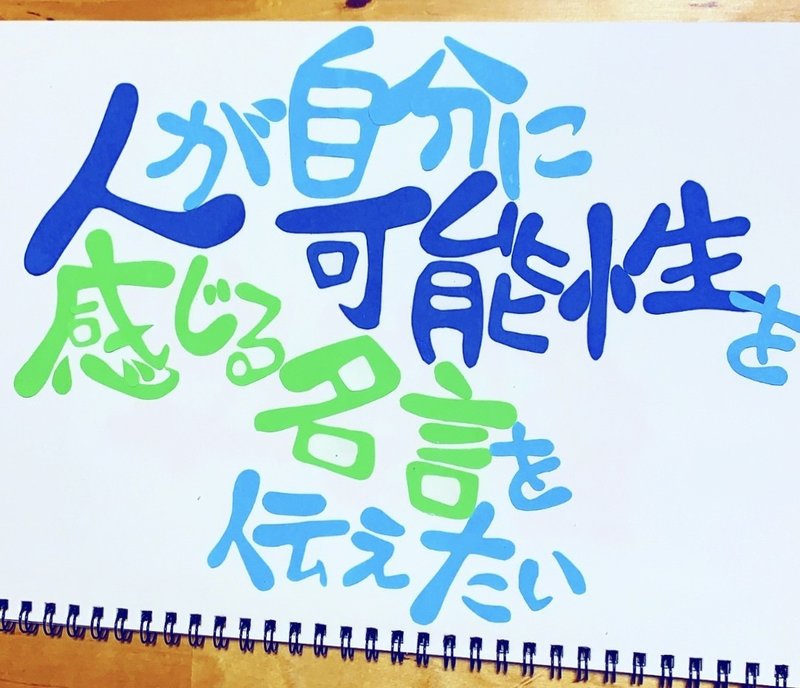 人が自分に
可能性を
感じる名言を
伝えたい